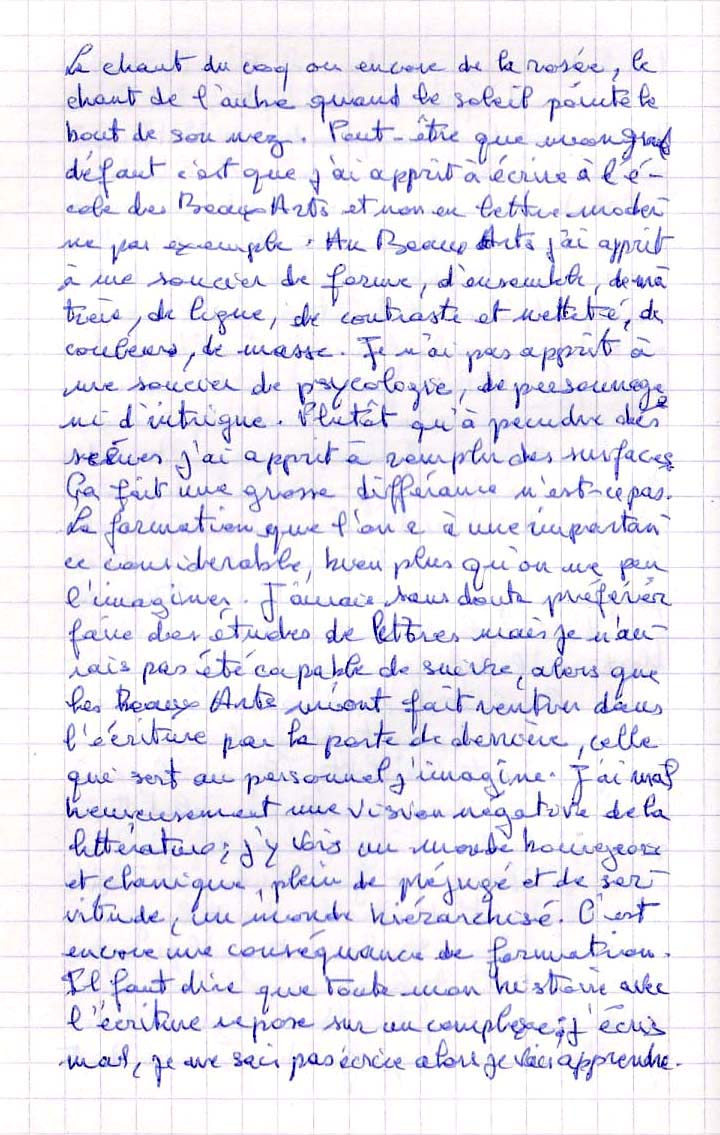 Le chant du coq ou encore de la rosée, le
chant de l'aube quand le soleil pointe le
bout de son nez. Peut-être que mon grand
défaut c'est que j'ai apprit à écrire à l'é-
cole des Beaux Arts et non en lettre moder
ne par exemple. Au Beaux Arts j'ai apprit
à me soucier de forme, d'ensemble, de ma
tière, de ligne, de contraste et netteté, de
couleurs, de masse. Je n'ai pas apprit à
me soucier de psycologie, de personnage
ni d'intrigue. Plutôt qu'à pendre des
j'ai apprit à remplir des surfaces
Ça fait une grosse différance n'est-ce pas.
La formation que l'on a à une importan
ce considerable, bien plus qu'on ne peu
l'imaginer. J'aurais sans doute préférer
faire des études de lettres mais je n'au-
rais pas été capable de suivre, alors que
les Beaux Arts m'ont fait rentrer dans
l'écriture par la porte de derrière, celle
qui sert au personnel j'imagine. J'ai mal
heureusement une vision négative de la
littérature; j'y vois un monde bourgeois
et clanique, plein de préjugé et de ser
vitude, un monde hiérarchisé. C'est
encore une conséquance de formation.
Il faut dire que toute mon histoire avec
l'écriture repose sur un complexe; j'écris
mal, je ne sais pas écrire alors je vais apprendre.